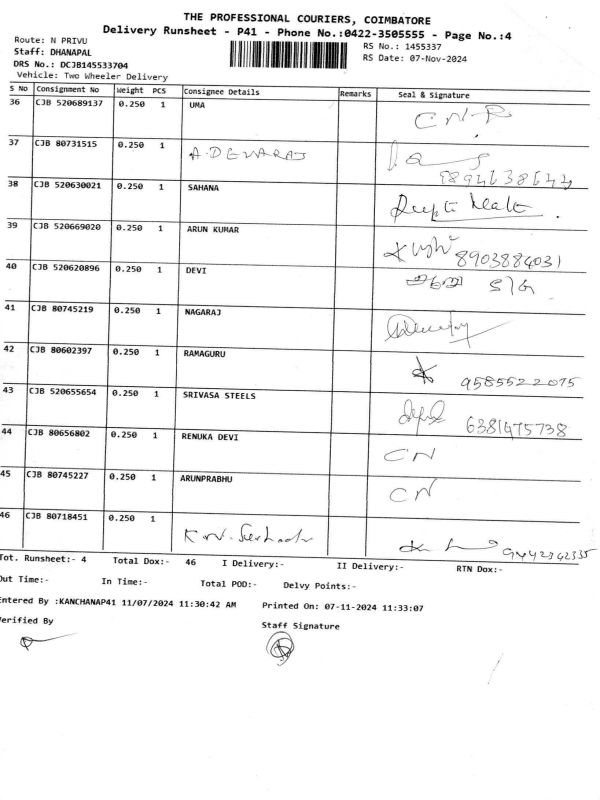 THE PROFESSIONAL COURIERS, COIMBATORE
Delivery Runsheet - P41 - Phone No.:0422-3505555 - Page No.:4
Route: N PRIVU RS No.: 1455337
Staff: DHANAPAL RS Date: 07-Nov-2024
DRS No.: DCJB145533704
Vehicle: Two Wheeler Delivery
S No Consignment No Weight PCS Consignee Details Remarks Seal & Signature
36 CJB 520689137 0.250 1 UMA
37 CJB 80731515 0.250 1 A.DEVARAJ
9894638644
38 CJB 520630021 0.250 1 SAHANA
39 CJB 520669020 0.250 1 ARUN KUMAR
8903884031
40 CJB 520620896 0.250 1 DEVI
41 CJB 80745219 0.250 1 NAGARAJ
42 CJB 80602397 0.250 1 RAMAGURU
9585522075
43 CJB 520655654 0.250 1 SRIVASA STEELS
6381475738
44 CJB 80656802 0.250 1 RENUKA DEVI
CN
45 CJB 80745227 0.250 1 ARUNPRABHU
CN
46 CJB 80718451 0.250 1
9442342335
Tot. Runsheet:- 4 Total Dox:- 46 I Delivery:- II Delivery:- RTN Dox:-
Out Time:- In Time:- Total POD:- Delvy Points:-
Entered By :KANCHANAP41 11/07/2024 11:30:42 AM Printed On: 07-11-2024 11:33:07
Verified By Staff Signature